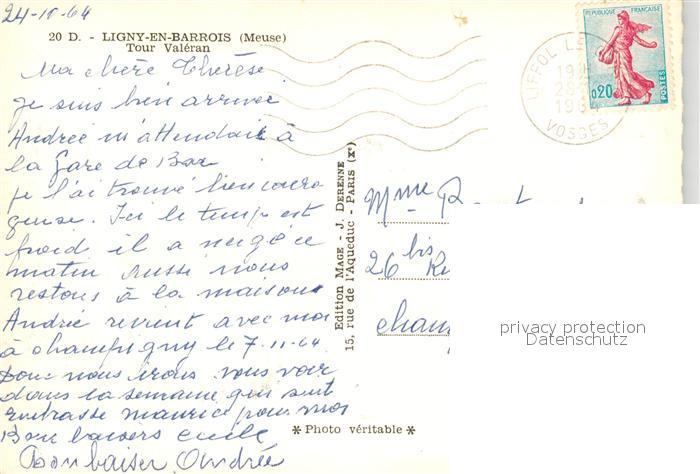 24-10-64
20 D. - LIGNY-EN-BARROIS (Meuse)
Tour Valéran
Ma chère Thérèse
je suis bien arrivée
Andrée m'attendait à
la gare de Bar
je l'ai trouvé bien coura
geuse. Ici le temps est
froid il a neigé ce
matin aussi nous
restons à la maison
Andrée revient avec moi
à champigny le 7.11.64
Donc nous irons vous voir
dans la semaine qui suit
embrasse maurice pour moi
Bon baisers cecile
Bon baiser Andrée
Edition MAGE - J. DERENNE
15, rue de l'Aqueduc - PARIS (Xe)
* Photo véritable *
REPUBLIQUE FRANÇAISE
0,20
POSTES
VOSGES
Mme
26 bis
cham
privacy protection
Datenschutz